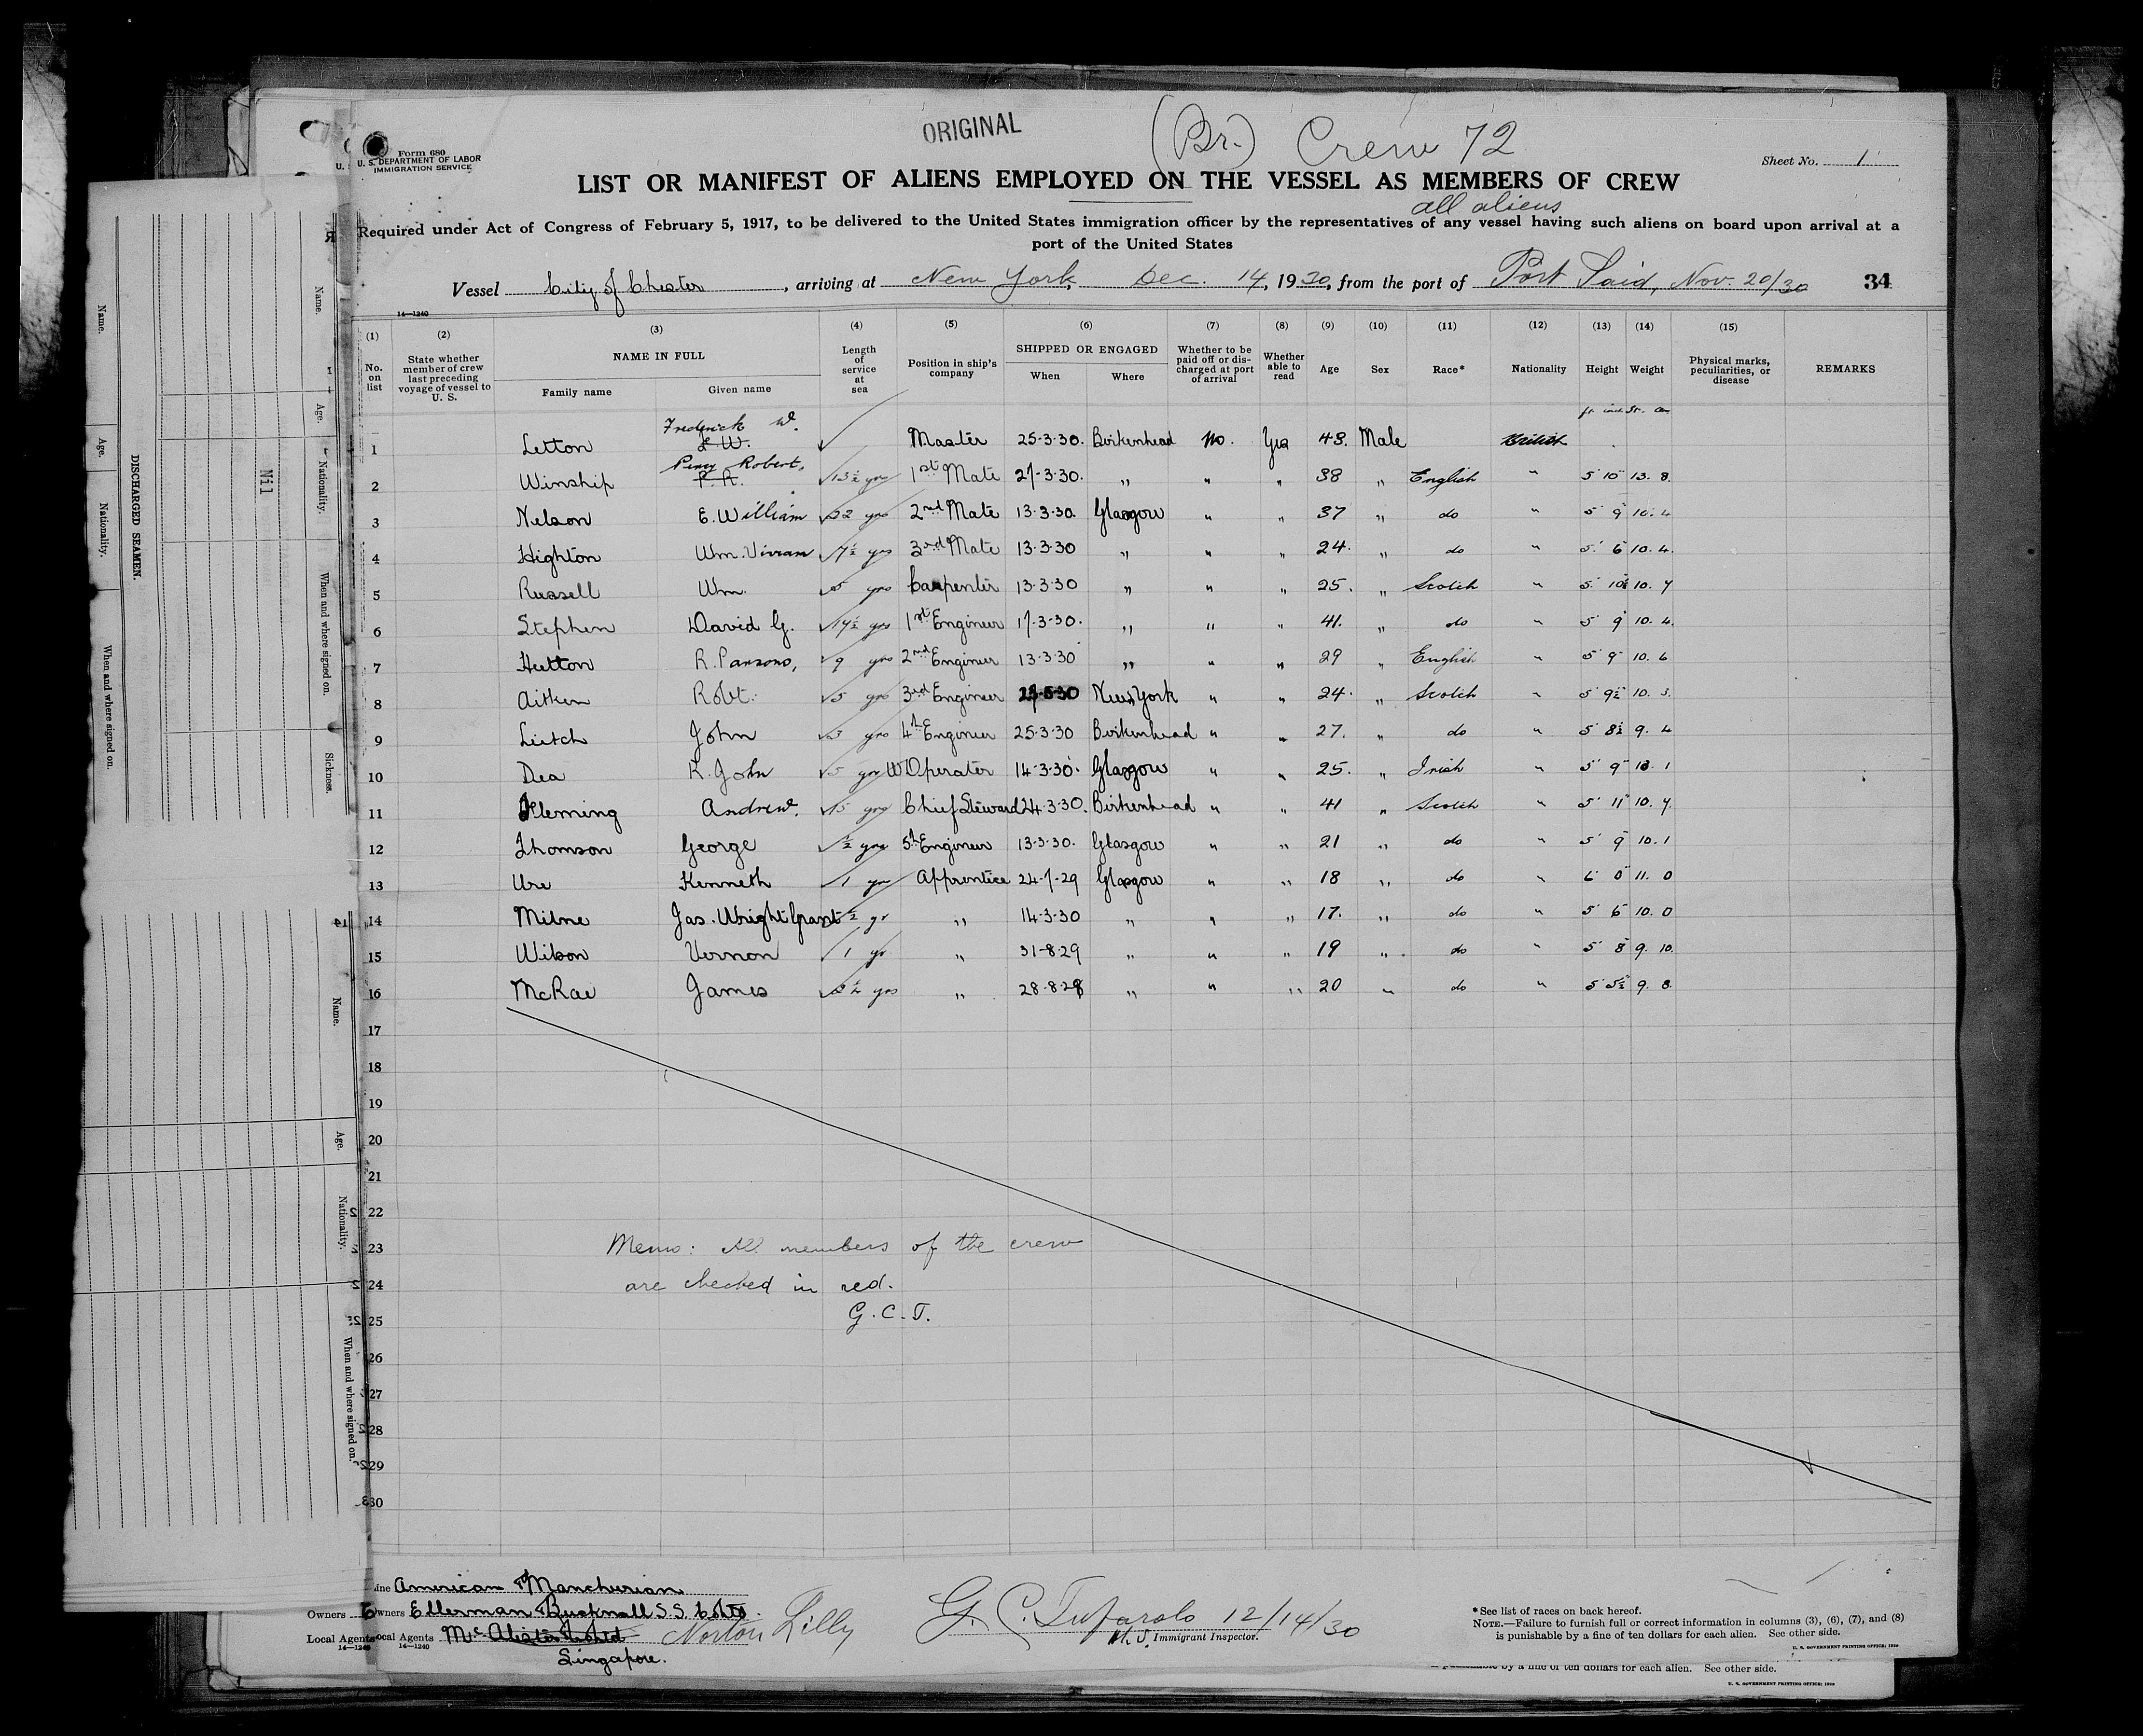 ORIGINAL
(Br.) Crew 72
Form 680
U. S. DEPARTMENT OF LABOR
IMMIGRATION SERVICE
Sheet No. 1
LIST OR MANIFEST OF ALIENS EMPLOYED ON THE VESSEL AS MEMBERS OF CREW
all aliens
Required under Act of Congress of February 5, 1917, to be delivered to the United States immigration officer by the representatives of any vessel having such aliens on board upon arrival at a
port of the United States
Vessel City of Chester, arriving at New York, Dec. 14, 1930, from the port of Port Said, Nov. 20/30 34
14—1240
(1) (2) (3) (4) (5) (6) (7) (8) (9) (10) (11) (12) (13) (14) (15)
No. on list
State whether member of crew last preceding voyage of vessel to U. S.
NAME IN FULL
Family name Given name
Length of service at sea
Position in ship's company
SHIPPED OR ENGAGED
When Where
Whether to be paid off or discharged at port of arrival
Whether able to read
Age Sex Race* Nationality Height Weight
Physical marks, peculiarities, or disease
REMARKS
Frederick W.
1 Letton Master 25-3-30. Birkenhead No. Yes 48. Male British
Percy Robert,
2 Winship P. R. 13½ yrs 1st Mate 27-3-30. " " " 38 " English " 5 10 13. 8.
3 Nelson E. William 22 yrs 2nd Mate 13-3-30. Glasgow " " 37 " do " 5 9 10. 4
4 Highton Wm. Vivian 7½ yrs 3rd Mate 13-3-30 " " " 24. " do " 5 6 10. 4.
5 Russell Wm. 5 yrs Carpenter 13-3-30 " " " 25. " Scotch " 5 10½ 10. 7
6 Stephen David G. 17½ yrs 1st Engineer 17-3-30. " " " 41. " do " 5 9 10. 4.
7 Hutton R. Parsons, 9 yrs 2nd Engineer 13-3-30 " " " 29 " English " 5 9 10. 6
8 Aitken Robt. 5 yrs 3rd Engineer New York " " 24. " Scotch " 5 9½ 10. 3.
9 Leitch John 3 yrs 4th Engineer 25-3-30 Birkenhead " " 27. " do " 5 8½ 9. 4
10 Dea R. John 5 yrs W Operator 14-3-30. Glasgow " " 25. " Irish " 5 9 1
11 Fleming Andrew. 15 yrs Chief Steward 24-3-30. Birkenhead " " 41 " Scotch " 5 11 10. 7.
12 Thomson George ½ yrs 5th Engineer 13-3-30. Glasgow " " 21 " do " 5 9 10. 1
13 Ure Kenneth 1 yrs Apprentice 24-7-29 Glasgow " " 18 " do " 6 0 11. 0
14 Milne Jas. Wright Grant ½ yr " 14-3-30 " " " 17. " do " 5 6 10. 0
15 Wilson Vernon 1 yr " 31-8-29 " " " 19 " do " 5 8 9. 10.
16 McRae James 2½ yrs " 28-8-28 " " " 20 " do " 5 5½ 9. 8.
17
18
19
20
21
22
23
24
25
26
27
28
29
30
Memo: All members of the crew
are checked in red.
G. C. T.
Line American & Manchurian
Owners Ellerman & Bucknall S. S. Co Ltd.
Local Agents McAlister & Co Ltd Norton Lilly
Singapore.
14—1240
G. C. Tufarolo 12/14/30
U. S. Immigrant Inspector.
*See list of races on back hereof.
NOTE.—Failure to furnish full or correct information in columns (3), (6), (7), and (8)
is punishable by a fine of ten dollars for each alien. See other side.
U. S. GOVERNMENT PRINTING OFFICE: 1930
by a fine of ten dollars for each alien. See other side.
U. S. GOVERNMENT PRINTING OFFICE: 1930
Owners
Local Agents
14—1240
DISCHARGED SEAMEN.
Name.
Age.
Nationality.
When and where signed on.
Name.
Age.
Nationality.
When and where signed on.
Sickness.
Nil
Name.
Age.
Nationality.
When and where signed on.